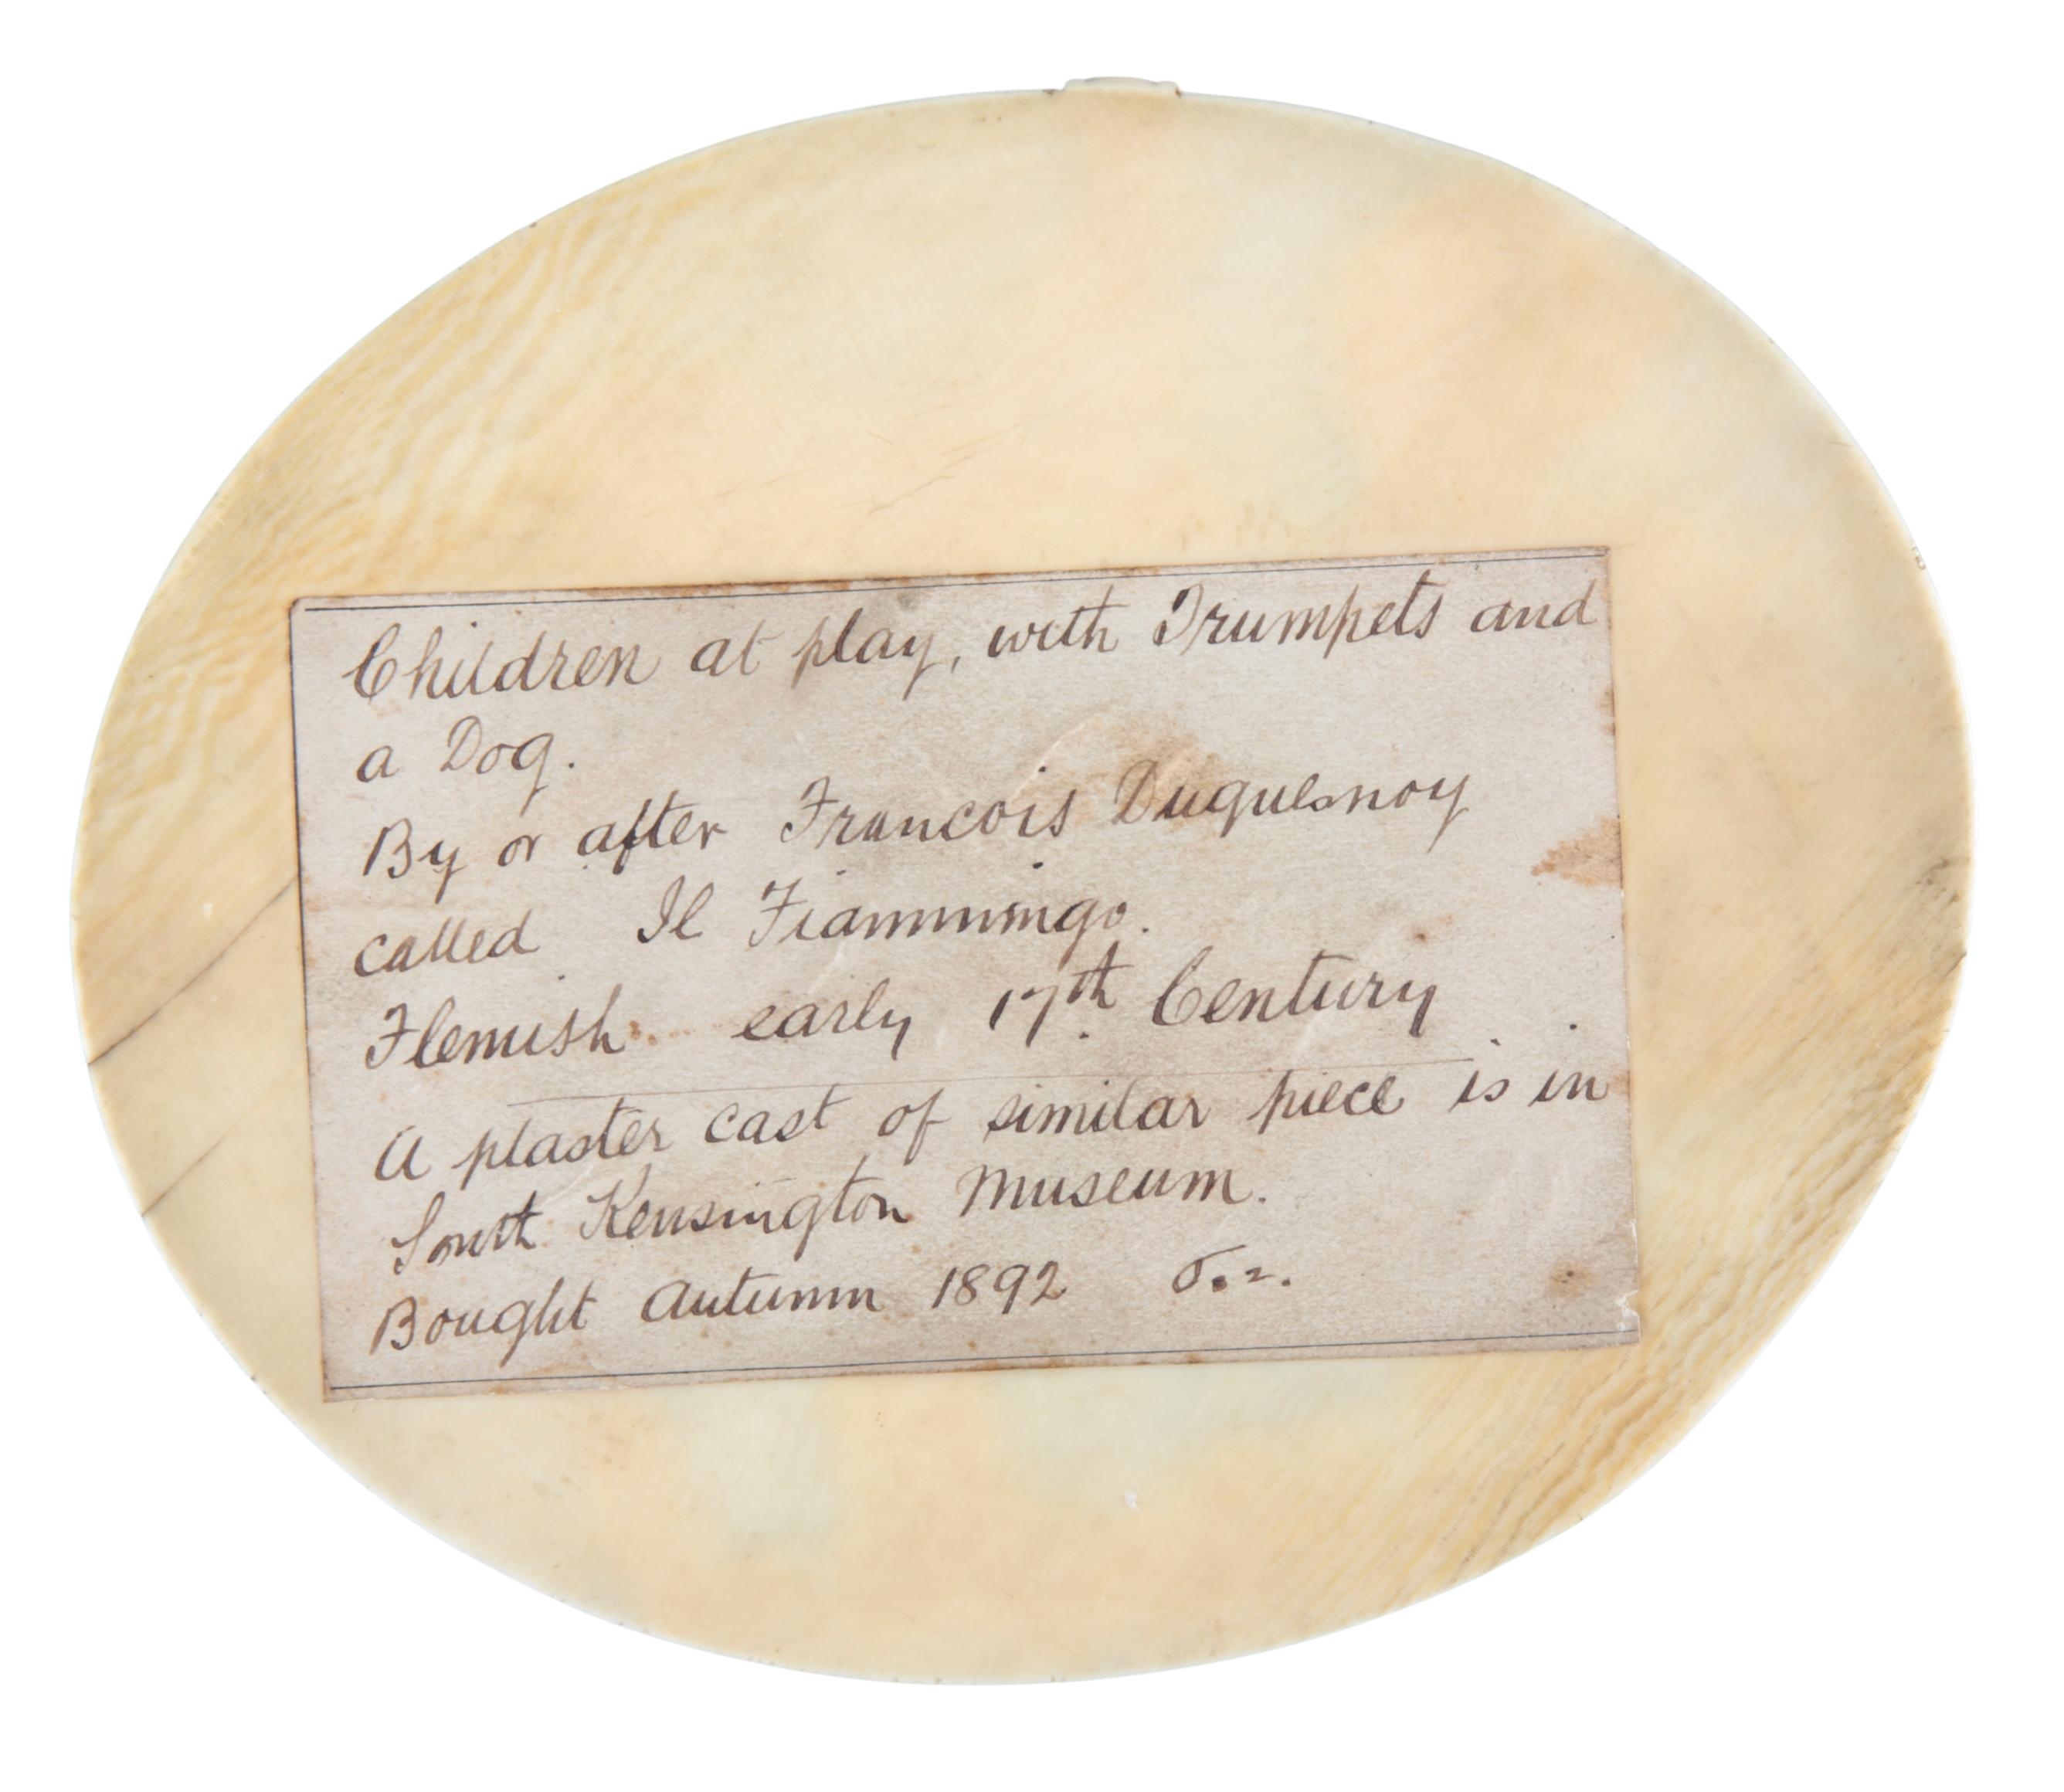 Children at play, with Trumpets and
a Dog.
By or after Francois Duquesnoy
called Il Fiammingo.
Flemish early 17th Century
A plaster cast of similar piece is in
South Kensington Museum.
Bought Autumn 1892